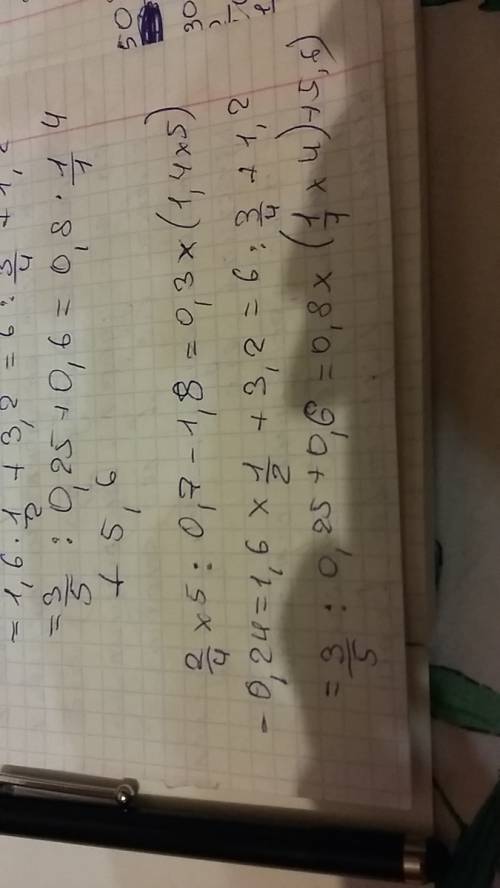 50
30
= 1,6 · 1/2 + 3,2 = 6 : 3/4 + 1,2
= 3/5 : 0,25 + 0,6 = 0,8 · 1/7 4
+ 5,6
2/4 x 5 : 0,7 - 1,8 = 0,3 x (1,4 x 5)
- 0,24 = 1,6 x 1/2 + 3,2 = 6 : 3/4 + 1,2
= 3/5 : 0,25 + 0,6 = 0,8 x (1/7 x 4) + 5,6)